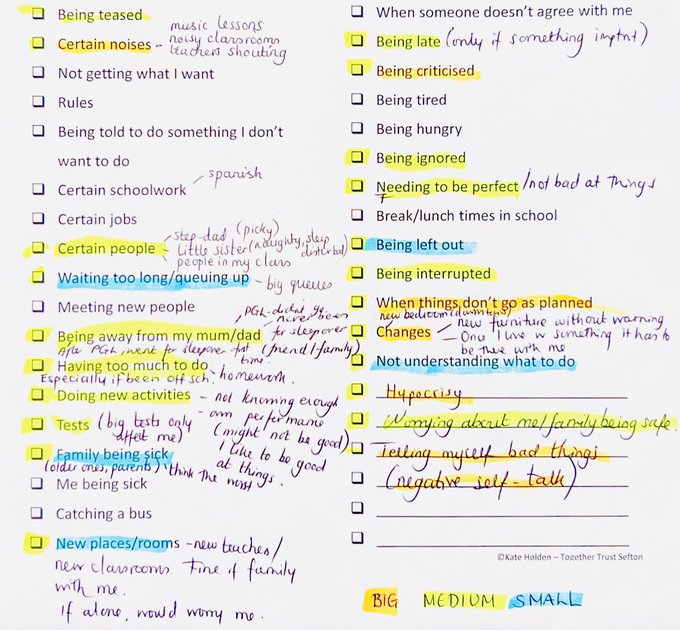 Being teased
Certain noises - music lessons
noisy classrooms
teachers shouting
Not getting what I want
Rules
Being told to do something I don't
want to do
Certain schoolwork - spanish
Certain jobs
Certain people - step-dad (picky)
little sister (naughty, sleep disturbed)
people in my class
Waiting too long/queuing up - big queues
Meeting new people
Being away from my mum/dad
PGL - didn't go. never been for sleepover
After PGL, went for sleepover 1st time (friend/family)
Having too much to do
Especially if been off sch: homework.
Doing new activities - not knowing enough
Tests (big tests only
affect me)
- own performance
(might not be good)
I like to be good
at things.
Family being sick
(older ones, parents) think the worst
Me being sick
Catching a bus
New places/rooms - new teaches/
new classrooms. Fine if family
with me.
If alone, would worry me.
When someone doesn't agree with me
Being late (only if something imptnt)
Being criticised
Being tired
Being hungry
Being ignored
Needing to be perfect /not bad at things
Break/lunch times in school
Being left out
Being interrupted
When things don't go as planned
new bedroom
Changes - new furniture without warning
- One I live w something it has to
be true with me
Not understanding what to do
Hypocrisy
Worrying about me/family being safe.
Telling myself bad things
(negative self-talk)
©Kate Holden – Together Trust Sefton
BIG MEDIUM SMALL